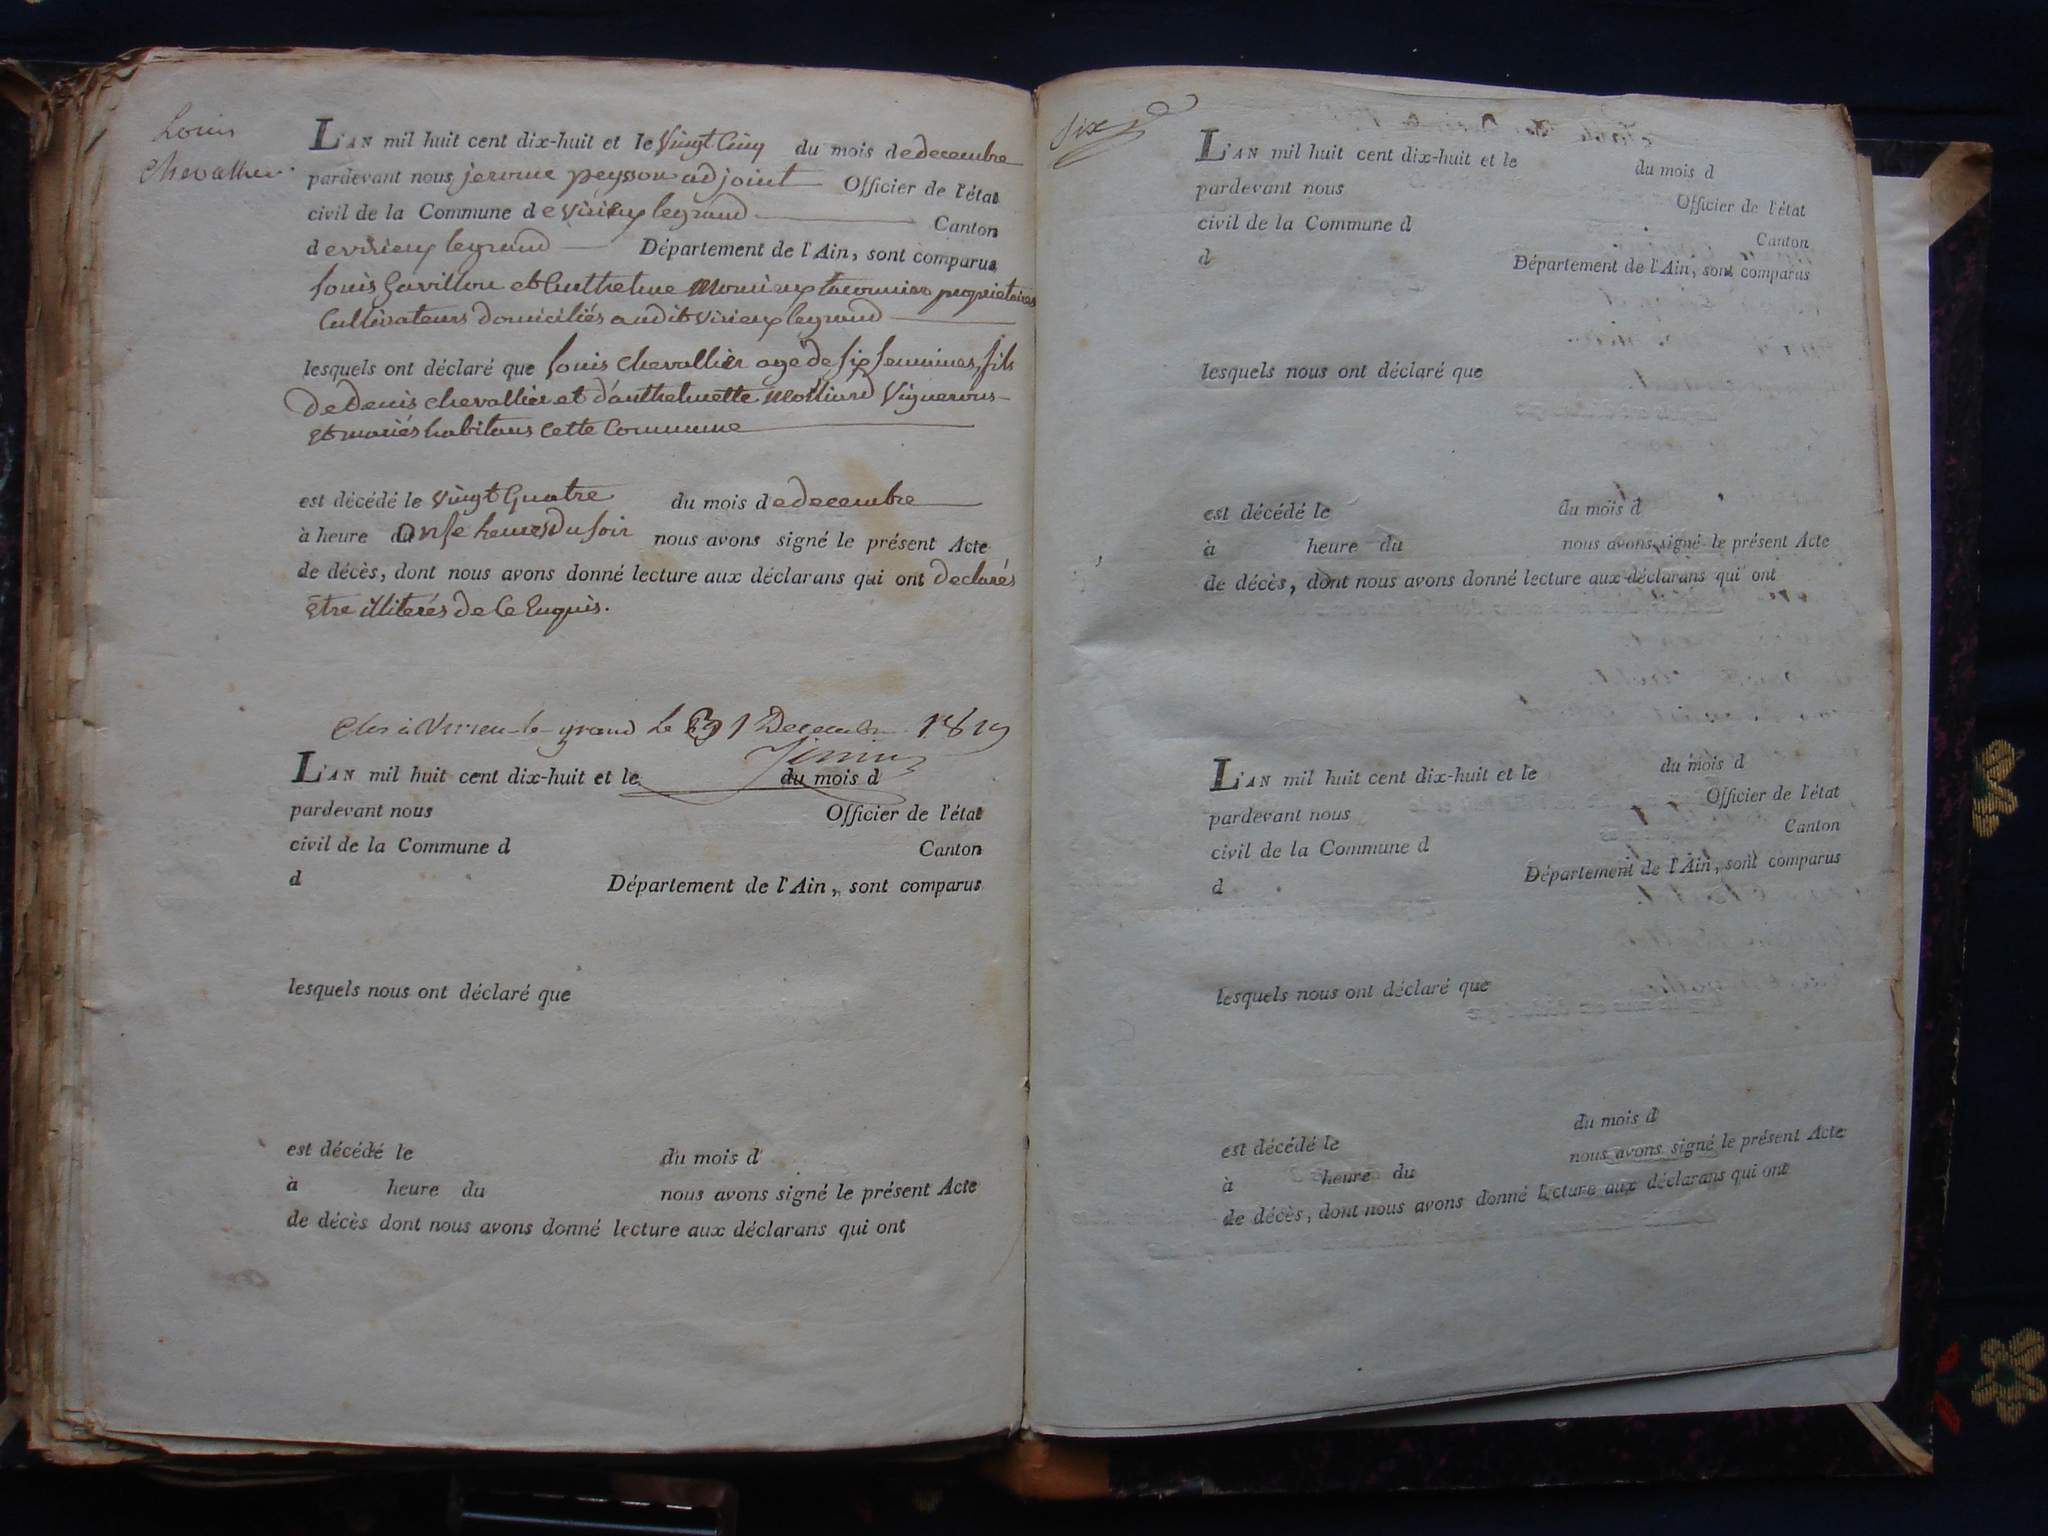 Louis
Chevallier
L'AN mil huit cent dix-huit et le Vingt Cinq du mois de decembre
pardevant nous jerome peysson adjoint Officier de l'état
civil de la Commune de Virieu legrand Canton
de virieux legrand Département de l'Ain, sont comparus
louis Gavillon et Anthelme proprietaires
Cultivateurs domiciliés audit virieux legrand
lesquels ont déclaré que louis Chevallier agé de six semaines, fils
De Denis chevallier et d'anthelmette Molliard Vignerons
et mariés habitans Cette Commune
est décédé le Vingt Quatre du mois de decembre
à heure du Onse heures Du soir nous avons signé le présent Acte
de décès, dont nous avons donné lecture aux déclarans qui ont declarés
être illiterés de Ce Enquis.
Clos à Virieu-le-grand le 31 Decembre
L'AN mil huit cent dix-huit et le du mois d
pardevant nous Officier de l'état
civil de la Commune d Canton
d Département de l'Ain, sont comparus
lesquels nous ont déclaré que
est décédé le du mois d
à heure du nous avons signé le présent Acte
de décès dont nous avons donné lecture aux déclarans qui ont
six
L'AN mil huit cent dix-huit et le du mois d
pardevant nous Officier de l'état
civil de la Commune d Canton
d Département de l'Ain, sont comparus
lesquels nous ont déclaré que
est décédé le du mois d
à heure du nous avons signé le présent Acte
de décès, dont nous avons donné lecture aux déclarans qui ont
L'AN mil huit cent dix-huit et le du mois d
pardevant nous Officier de l'état
civil de la Commune d Canton
d Département de l'Ain, sont comparus
lesquels nous ont déclaré que
est décédé le du mois d
à heure du nous avons signé le présent Acte
de décès, dont nous avons donné lecture aux déclarans qui ont